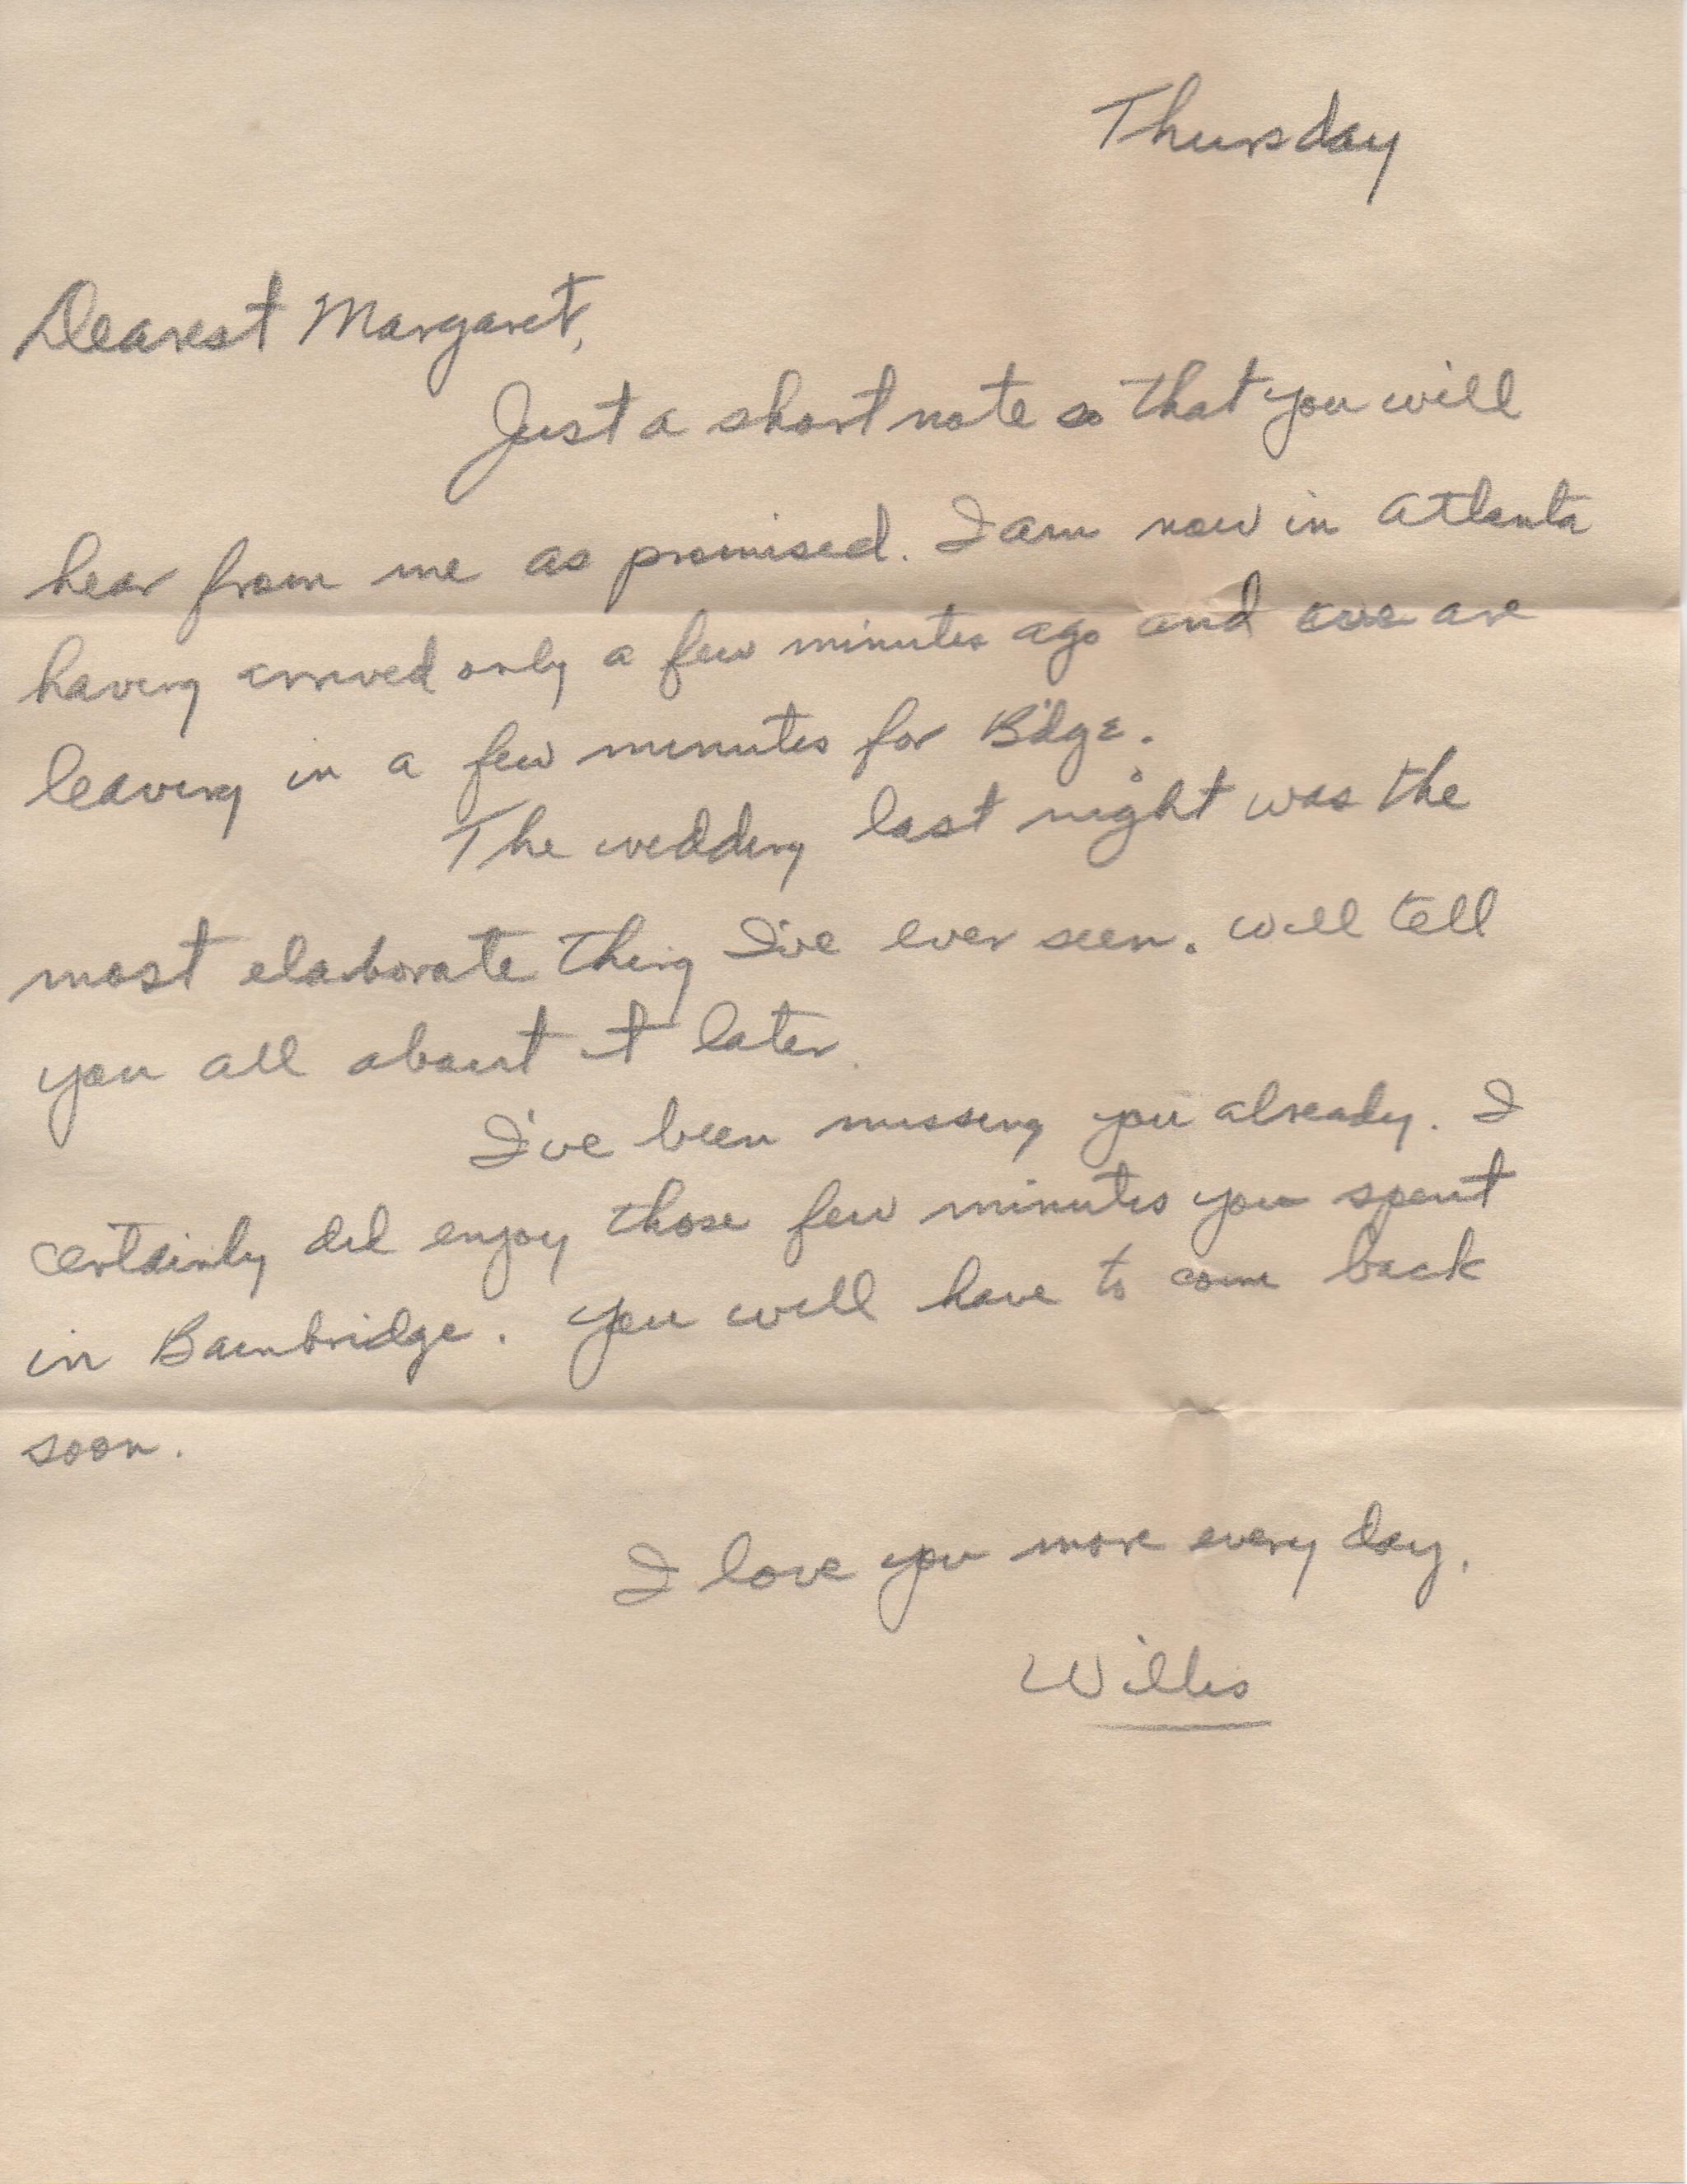 Thursday
Dearest Margaret,
Just a short note so that you will
hear from me as promised. I am now in Atlanta
having arrived only a few minutes ago and we are
leaving in a few minutes for B'dge.
The wedding last night was the
most elaborate thing I've ever seen. Will tell
you all about it later.
I've been missing you already. I
certainly did enjoy those few minutes you spent
in Bainbridge. You will have to come back
soon.
I love you more every day.
Willis